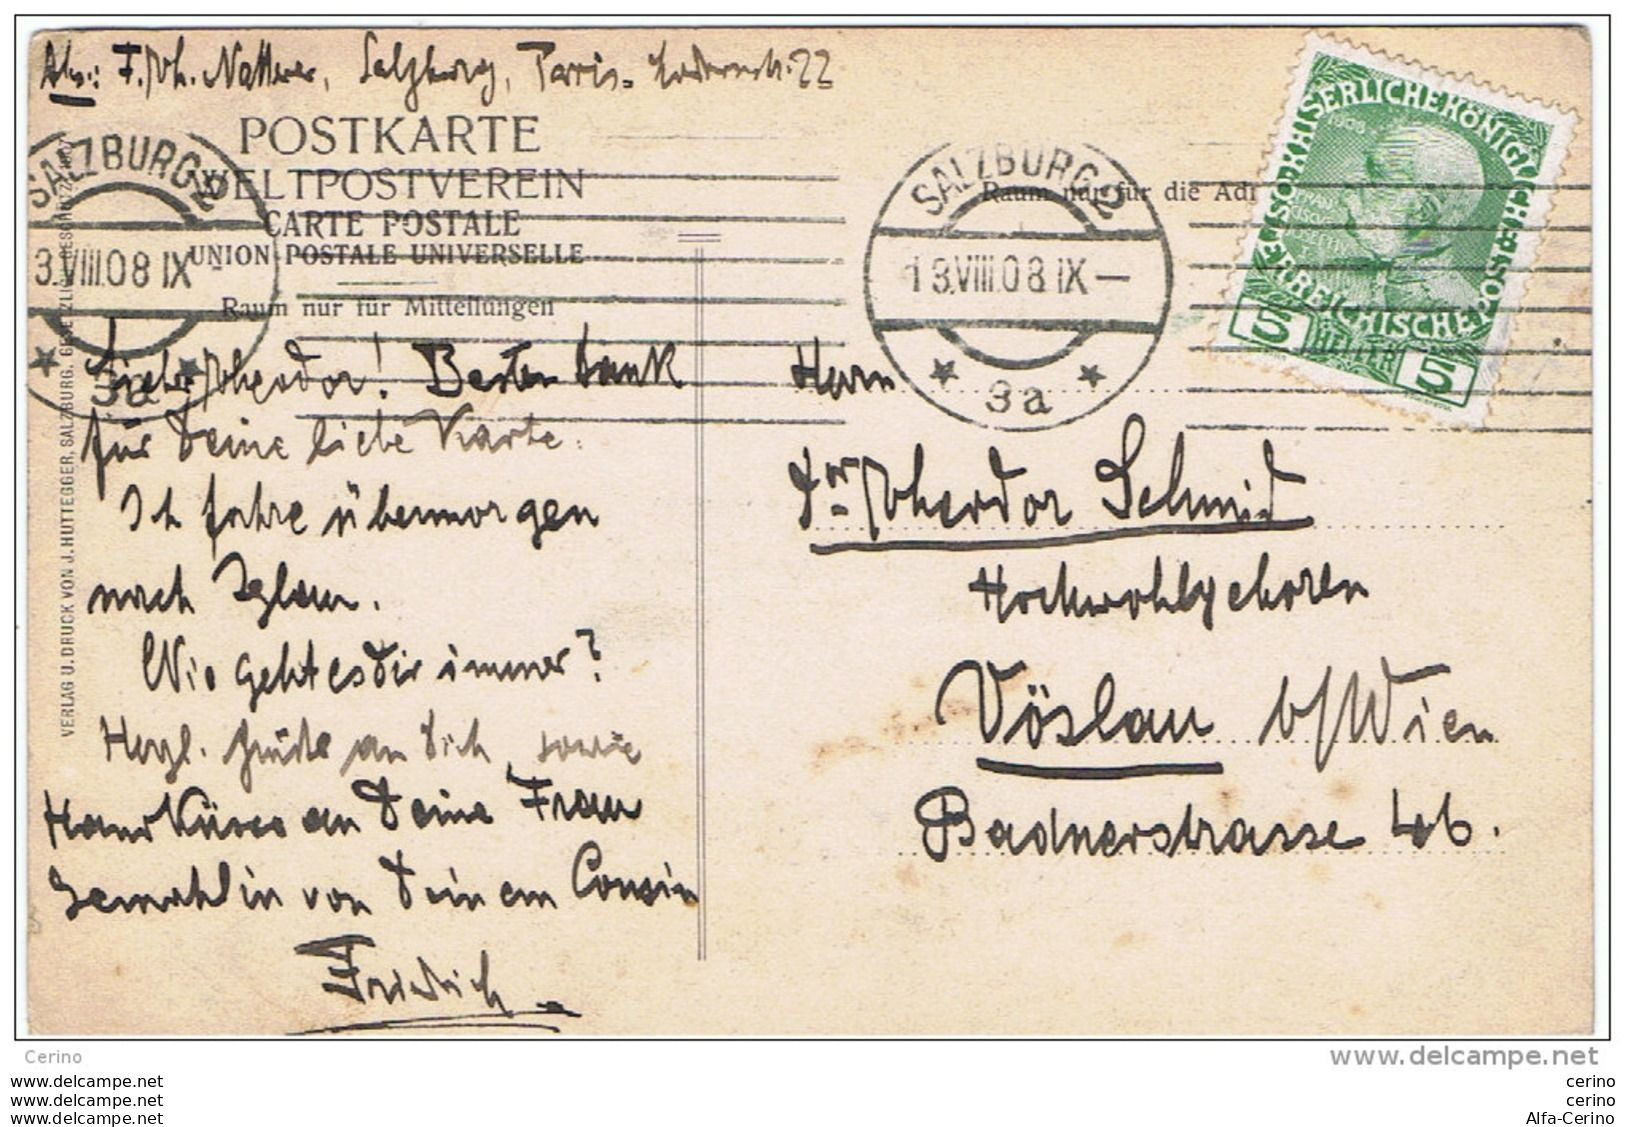 Abs.: F. Th. Natterer, Salzburg, Paris- 22
POSTKARTE
WELTPOSTVEREIN
CARTE POSTALE
UNION POSTALE UNIVERSELLE
Raum nur für Mitteilungen
Raum nur für die Adr
SALZBURG 2
3.VIII.08 IX
3a
SALZBURG 2
13.VIII.08 IX-
3a
KAISERLICHE KÖNIGLICHE ÖSTERREICHISCHE POST
1908
5 HELLER 5
Lieber Theodor! Besten Dank
für Deine liebe Karte.
Ich fahre übermorgen
nach Iglau.
Wie geht es Dir immer?
Herzl. Grüße an Dich, sowie
Handküsse an Deine Frau
Gemahlin von Deinem Cousin
Friedrich
Herrn
Dr Theodor Schmid
Hochwohlgeboren
Vöslau b/Wien
Badnerstrasse 46.
VERLAG U. DRUCK VON J. HUTTEGGER, SALZBURG. GESETZLICH GESCHÜTZT
Cerino
www.delcampe.net
www.delcampe.net
www.delcampe.net
www.delcampe.net
cerino
cerino
Alfa-Cerino